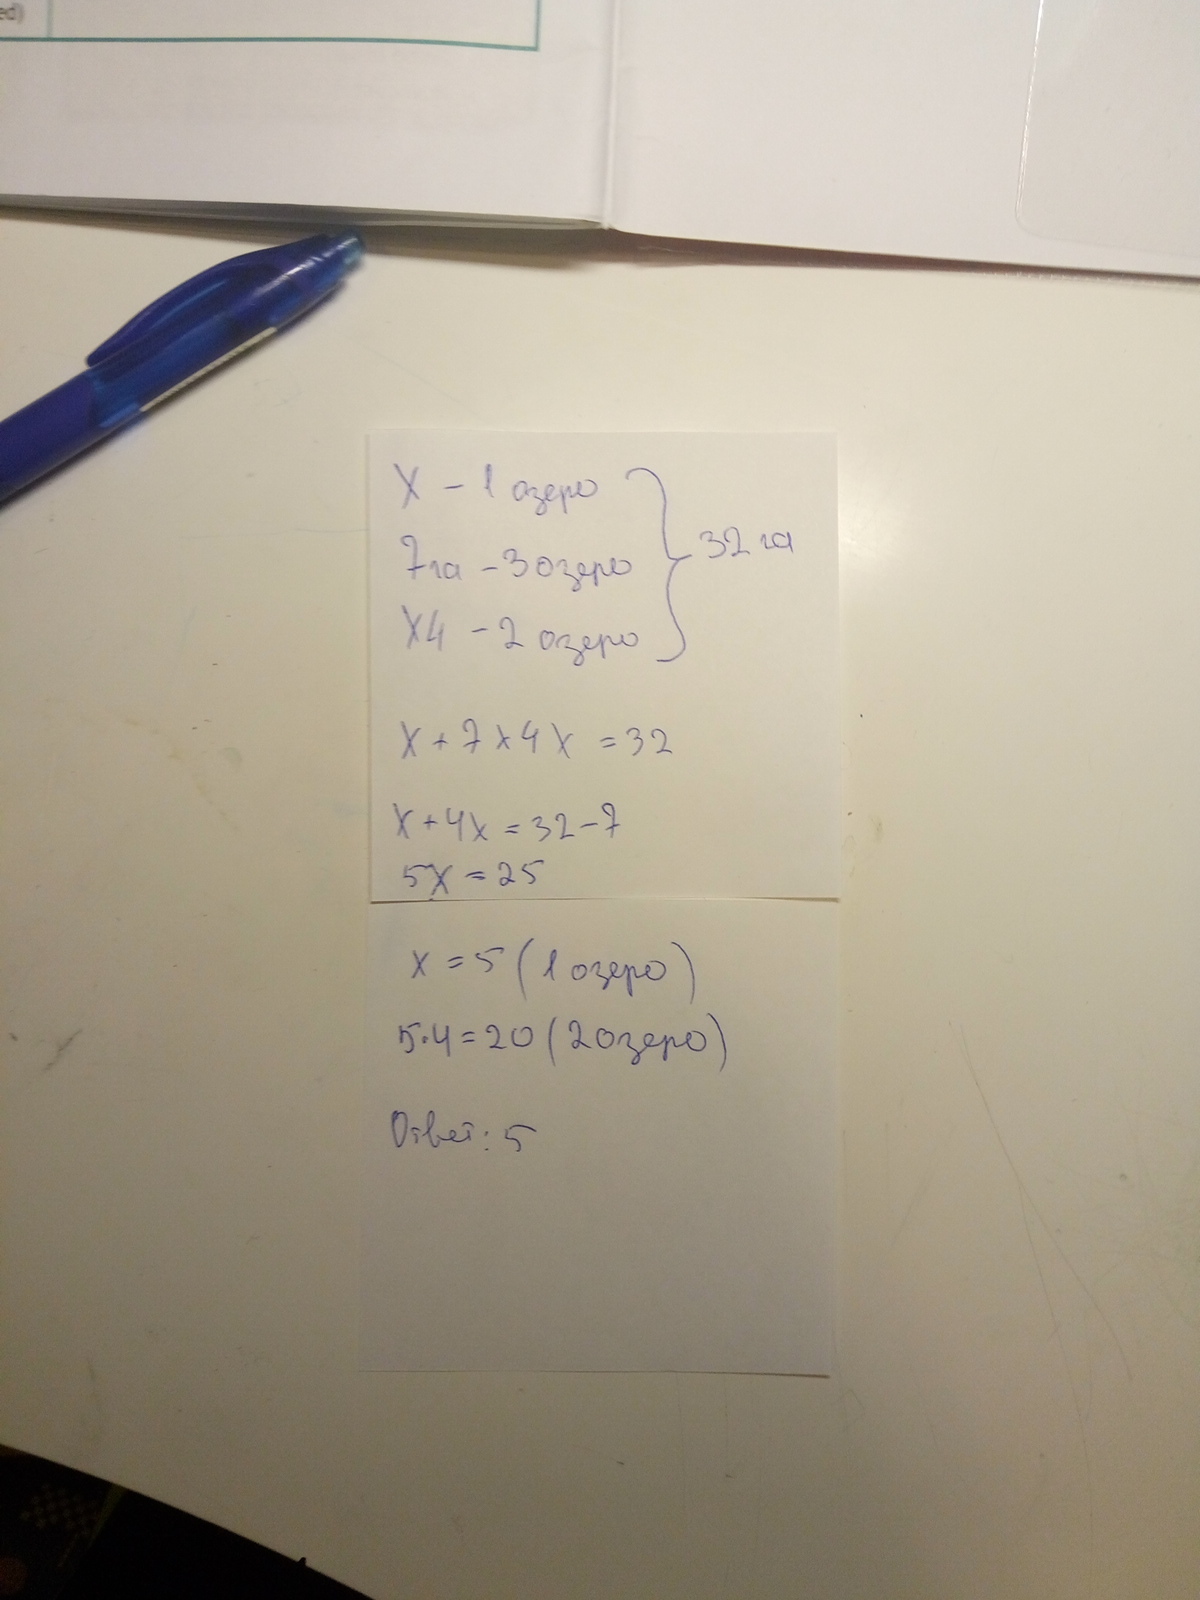 ed)
X - 1 озеро
7га - 3 озеро
X4 - 2 озеро
32 га
x + 7 x 4 x = 32
x + 4x = 32 - 7
5x = 25
x = 5 (1 озеро)
5·4 = 20 (2 озеро)
Ответ: 5